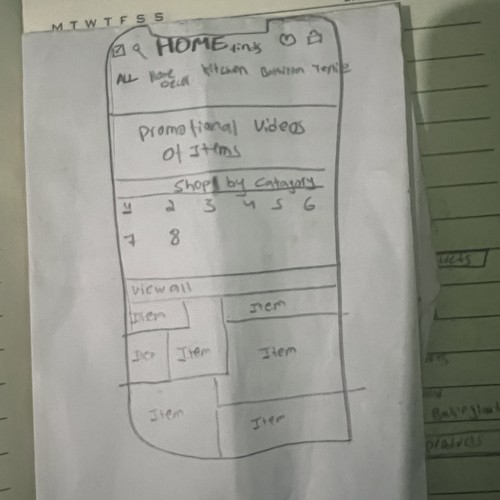 M T W T F S S
HOME
ALL Home Kitchen
Decor
Promotional Videos
Of Items
Shop by Catagory
1 2 3 4 5 6
7 8
View all
Item Item
Item Item Item
Item Item
products